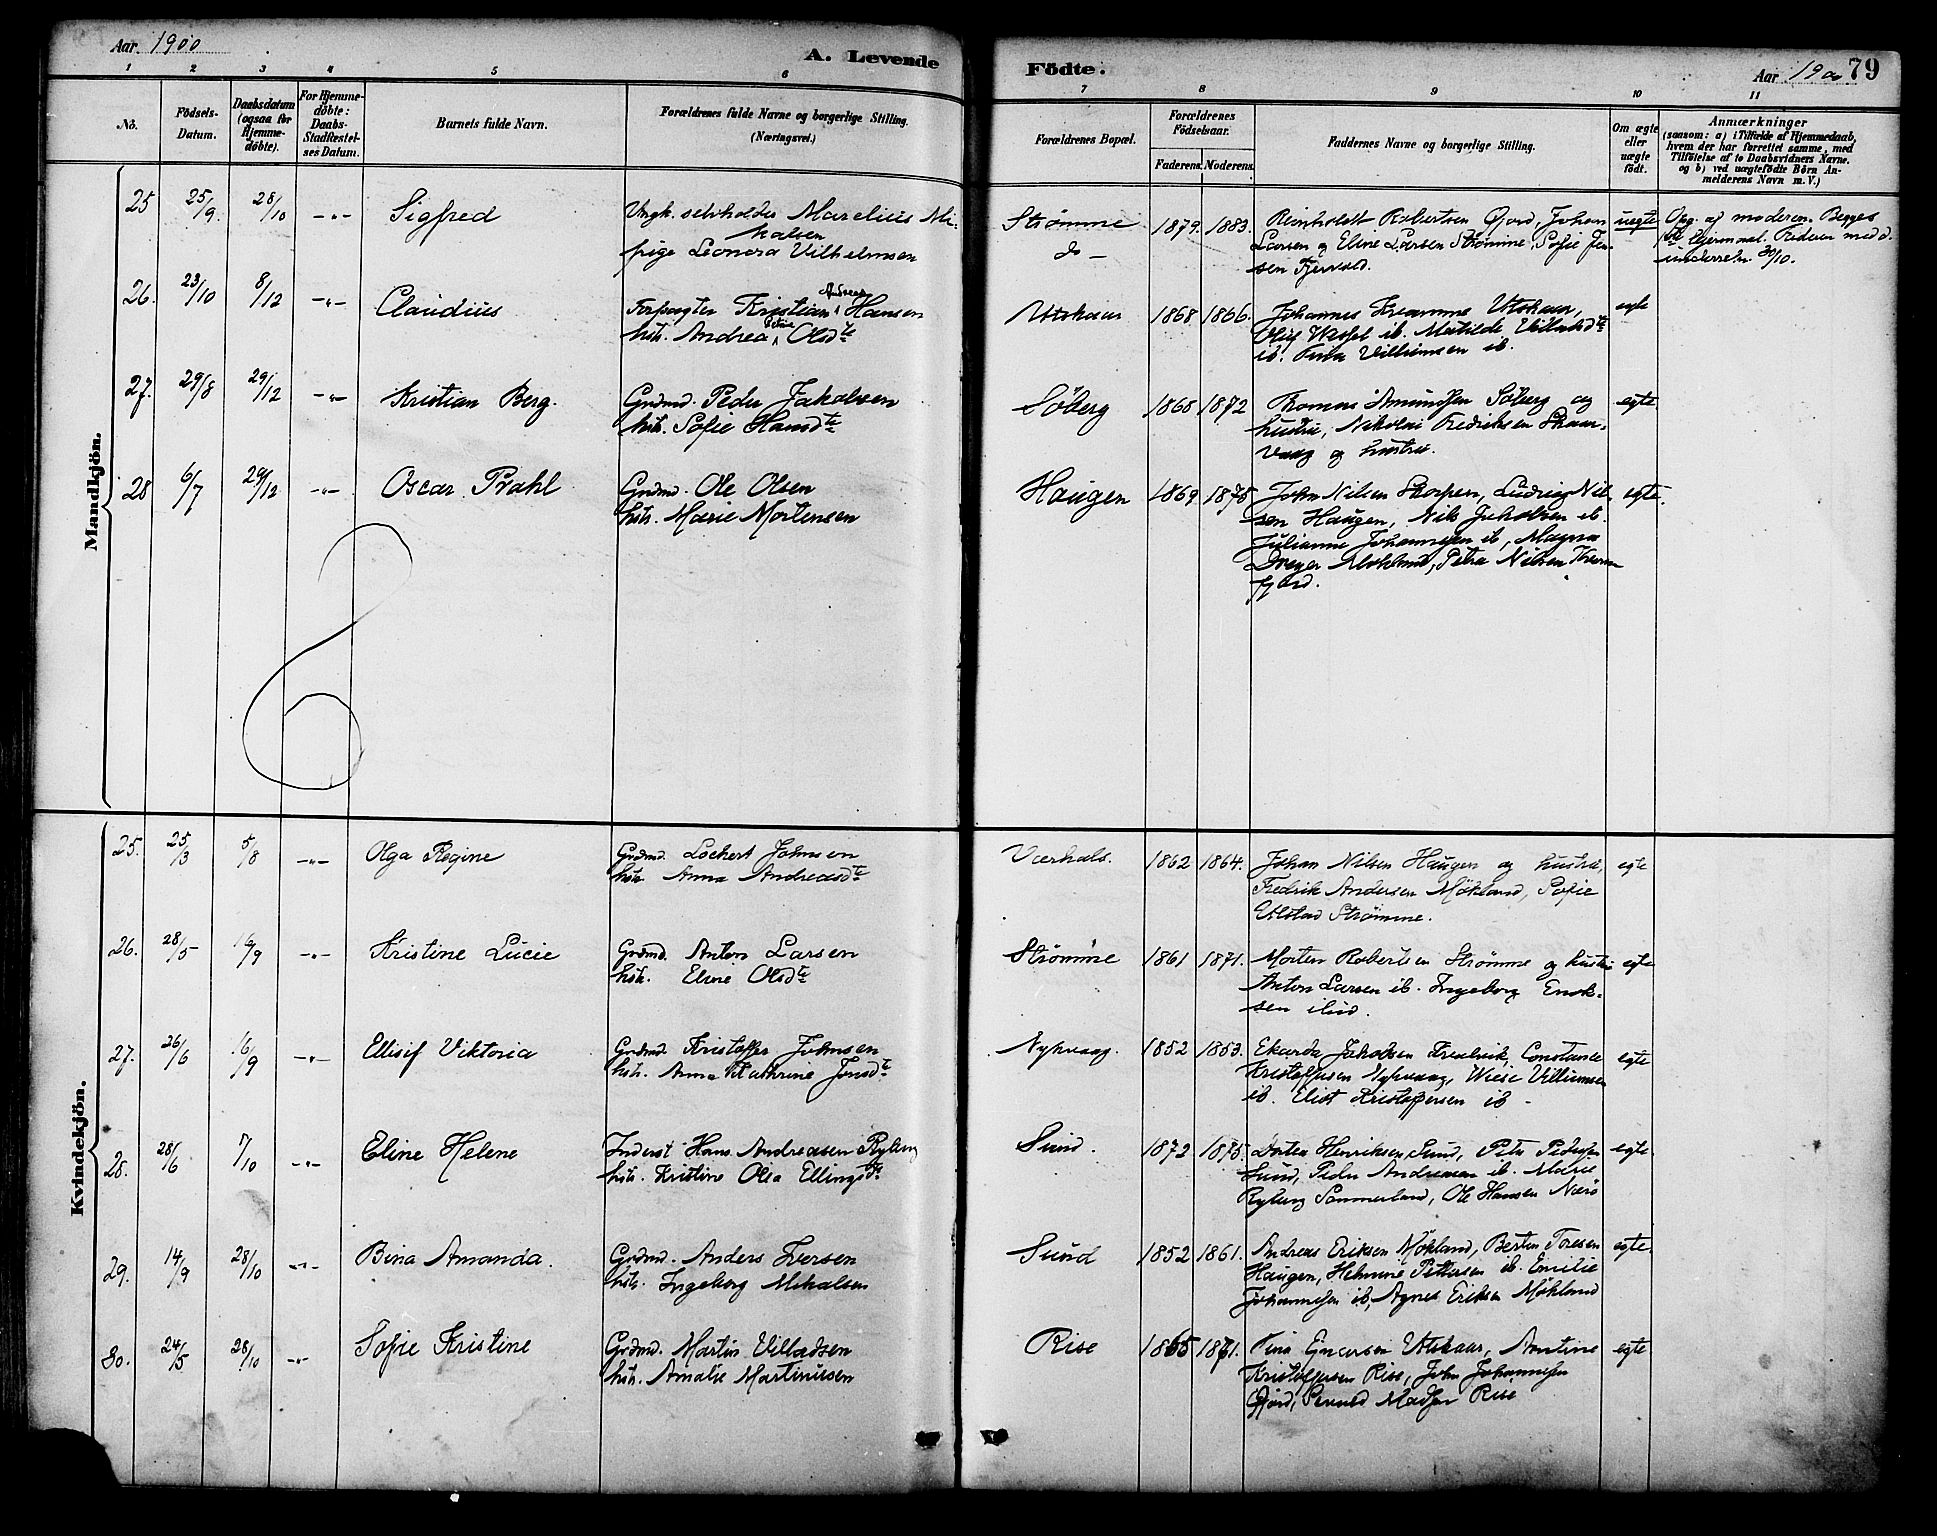 Aar. 1900
A. Levende
Födte.
Aar 1900
79
1 2 3 4 5 6 7 8 9 10 11
No.
Födsels-
Datum.
Daabsdatum
(ogsaa for
Hjemme-
döbte).
For Hjemme-
döbte:
Daabs-
Stadfæstel-
ses Datum.
Barnets fulde Navn.
Forældrenes fulde Navne og borgerlige Stilling.
(Næringsvei.)
Forældrenes Bopæl.
Forældrenes
Födselsaar.
Faderens. Moderens.
Faddernes Navne og borgerlige Stilling.
Om ægte
eller
uægte
födt.
Anmærkninger
(saasom: a) i Tilfælde af Hjemmedaab,
hvem der har forrettet samme, med
Tilföielse af to Daabsvidners Navne.
og b) ved uægtefödte Börn An-
melderens Navn m. V.)
Mandkjön.
25 25/9. 28/10 -"- Sigfred
Ungk. selvholder Marelius Mi-
kalsen
pige Leonora Vilhelmsen
Strømme
do -
1879. 1883.
Reinholdt Robertsen Gjord, Johan
Larsen og Eline Larsen Strømme, Sofie Jen-
sen
uegte
Opg. af moderen. Begges
Faderen med d.
underret. 30/10.
26. 23/10 8/12 -"- Claudius
Forpagter Kristian Andreas Hansen
hstr. Andrea Petrine Olsdtr
Utskaar
1868 1866.
Johannes Kramme Utskaar,
Oluf Wessel ib. Matilde
ib. Tina Villumsen ib.
egte
27. 29/8 29/12 -"- Kristian Berg.
Grdmd. Peder Jakobsen
hstr. Sofie Hansdtr
Söberg
1868 1872
Thomas Amundsen Söberg og
hustru, Nikolai Fedriksen Skaar-
vaag og hustru.
egte.
28 6/7 29/12 -"- Oscar Prahl
Grdmd. Ole Olsen
hstr. Marie Mortensen
Haugen
1869 1875
John Nilsen Skorpen, Ludvig Nil-
sen Haugen, Nils Jakobsen ib.
Julianne Johannessen ib, Magna
Dreyer Møkland, Petra Nilsen
fjord.
egte.
Kvindekjön.
25. 25/3 5/8 -"- Olga Regine
Grdmd. Lockert Johnsen
hstr. Anna Andreasdtr
Værhals.
1862 1864.
Johan Nilsen Haugen og hustru,
Fredrik Andersen Møkland, Sofie
Ulstad Strømme.
egte
26. 28/5 16/9 -"- Kristine Lucie
Grdmd. Anton Larsen
hstr. Eline Olsdtr
Strømme
1861 1871.
Morten Robertsen Strømme og hustru
Anton Larsen ib. Ingeborg Enok-
sen ibid.
egte
27. 26/6 16/9 -"- Ellisif Viktoria
Grdmd. Kristoffer Johnsen
hstr. Anna Kathrine Jonsdtr
Nykvaag.
1852 1853.
Ekarda Jakobsen Fredvik, Constance
Kristoffersen Nykvaag, Wiese Villumsen
ib. Elist Kristoffersen ib -
egte
28. 28/6 7/10 -"- Eline Helene
Inderst Hans Andreasen Ryberg
hstr. Kristine Olia Ellingsdtr
Sund.
1872 1875.
Dorten Henriksen Sund, Petra Pedersen
Sund, Peder Andreasen ib. Marie
Ryberg Sommerland, Ole Hansen Nærø
egte.
29. 14/9 28/10 -"- Bina Amanda.
Grdmd. Anders Iversen
hstr. Ingeborg Mikalsen
Sund
1852 1861.
Andreas Eriksen Møkland, Berten Toresen
Haugen, Helmine Pettersen ib. Emilie
Johannessen ib, Agnes Eriksen Møkland
egte.
30. 24/5 28/10 -"- Sofie Kristine
Grdmd. Martin Villadsen
hstr. Amalie Martinussen
Rise
1865 1871.
Tina Enersen Utskaar, Antine
Kristoffersen Rise, John Johannessen
Gjord, Madsen Rise
egte